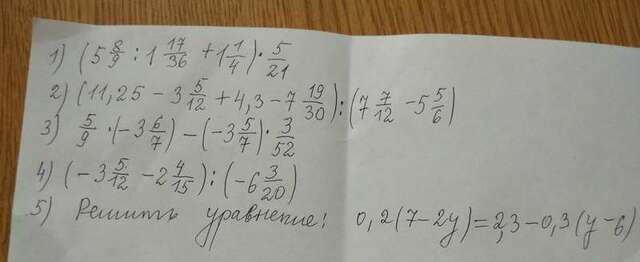 1) (5 8/9 : 1 17/36 + 1 1/4) · 5/21
2) (11,25 - 3 5/12 + 4,3 - 7 19/30) : (7 7/12 - 5 5/6)
3) 5/9 · (-3 6/7) - (-3 5/7) · 3/52
4) (-3 5/12 - 2 4/15) : (-6 3/20)
5) Решить уравнение: 0,2(7-2y)=2,3-0,3(y-6)